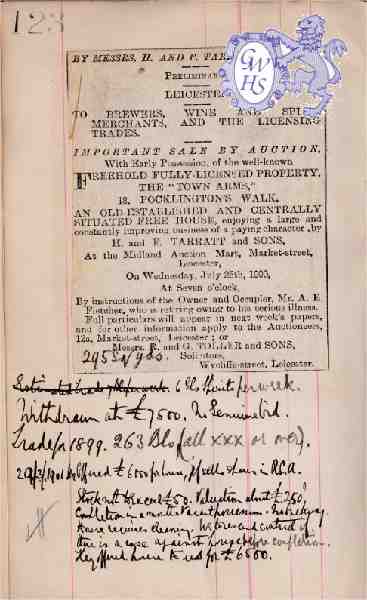 123
BY MESSRS. H. AND F. TAR
PRELIMINA
LEICESTE
GWHS
TO BREWERS, WINE AND SPI
MERCHANTS, AND THE LICENSING
TRADES.
IMPORTANT SALE BY AUCTION,
With Early Possession, of the well-known
FREEHOLD FULLY-LICENSED PROPERTY,
THE "TOWN ARMS,"
18, POCKLINGTON'S WALK,
AN OLD-ESTABLISHED AND CENTRALLY
SITUATED FREE HOUSE, enjoying a large and
constantly improving business of a paying character, by
H. and F. TARRATT and SONS,
At the Midland Auction Mart, Market-street,
Leicester,
On Wednesday, July 25th, 1900,
At Seven o'clock.
By instructions of the Owner and Occupier, Mr. A. E.
Fletcher, who is retiring owing to his serious illness.
Full particulars will appear in next week's papers,
and for other information apply to the Auctioneers,
12a, Market-street, Leicester; or
Messrs. R. and G. TOLLER and SONS,
Solicitors,
Wycliffe-street, Leicester.
295 yds.
6 per week.
Withdrawn at £7500. No bid.
Trade for 1899. 263 Bls (all xxx or over).
offered £6000 for house,
Stock £50. Valuation about £250
Completion in a month
house requires cleaning.
there is a case against house before completion.
They offered house to us for £6500.